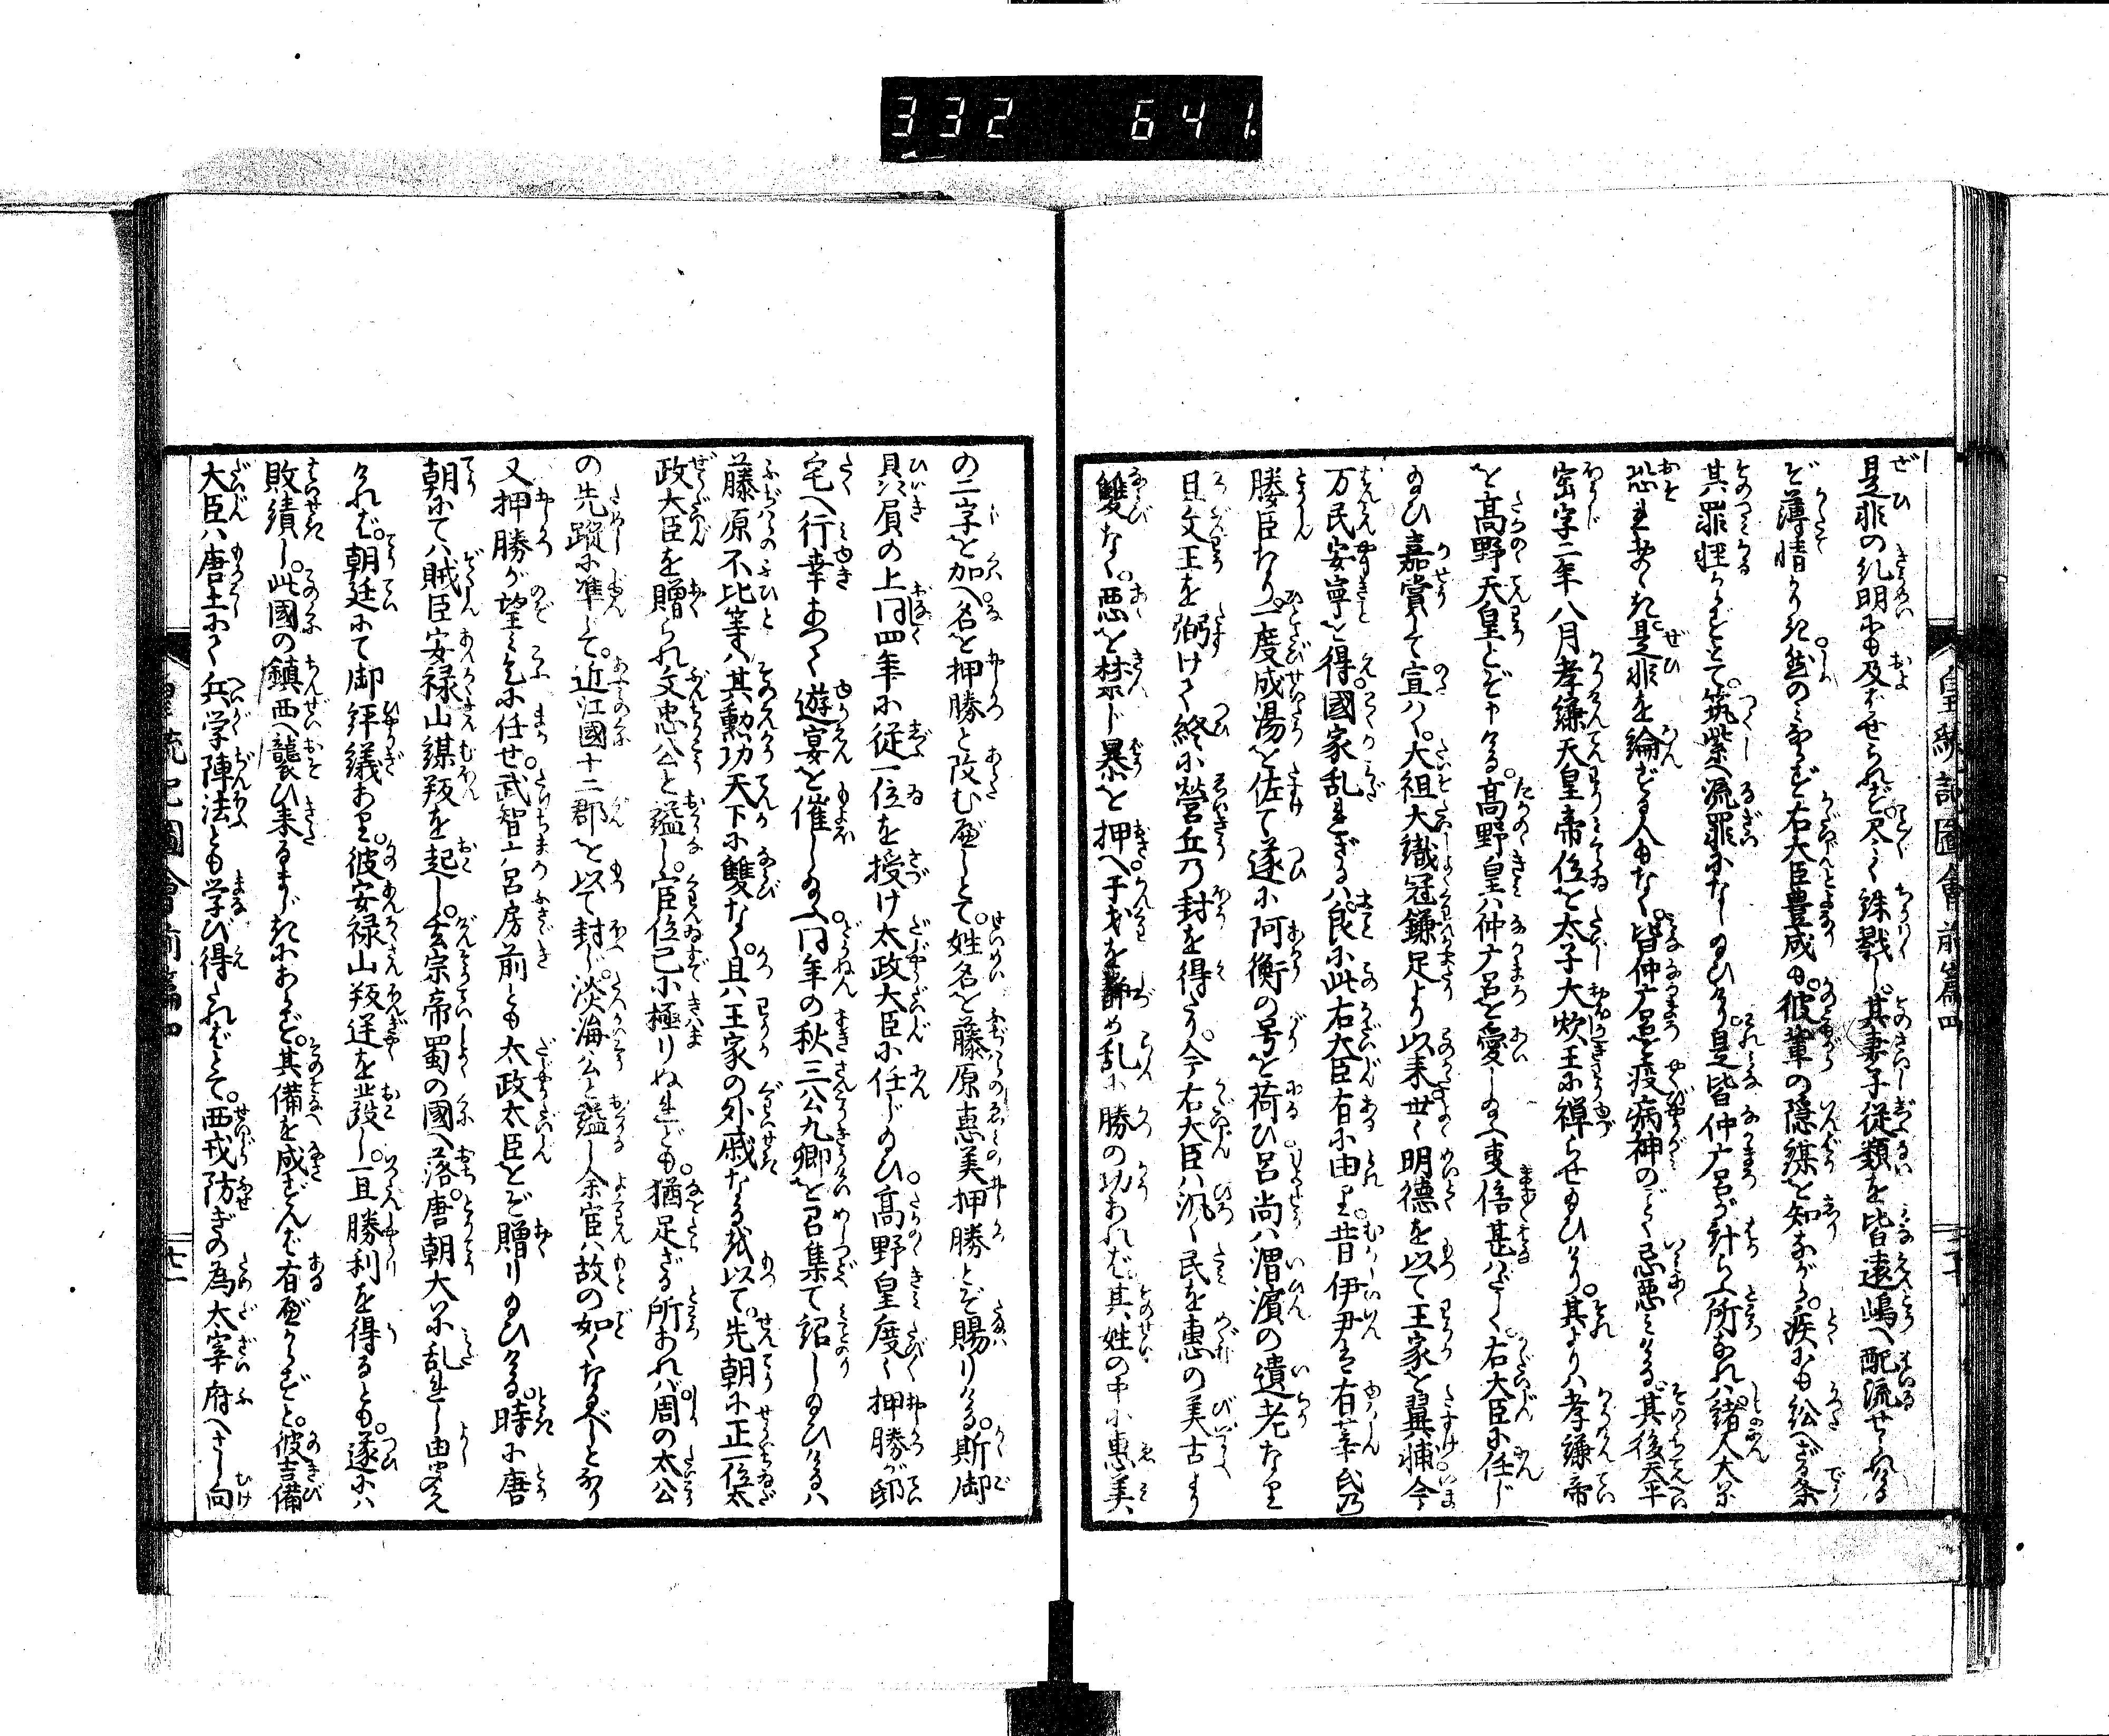 332 641.
皇統記圖會前篇四
是非の糺明にも及ばせられず尽く誅戮し。其妻子從類を皆遠嶋へ配流せられける
ぞ薄情かりき。然のみならず右大臣豊成も。彼輩の隠謀を知ながら。疾にも訟へざる条
其罪軽からずとて。筑紫へ流罪になし給ひけり。是皆仲广呂が計ふ所なれバ。諸人大に
恐れをのゝき。是非を論ずる人もなく。皆仲广呂を疫病神のごとく忌悪みける。其後天平
宝字二年八月孝謙天皇帝位を太子大炊王に禅らせ給ひけり。其よりハ孝謙帝
を高野天皇とぞ申ける。高野皇ハ仲广呂を愛し給ふ事倍甚はだしく。右大臣に任じ
給ひ嘉賞して宣ハく。大祖大織冠鎌足より以来世々明德を以て王家を翼補今
万民安寧を得。國家乱れざるハ。良に此右大臣有に由れり。昔伊尹は有莘氏乃
媵臣たり。一度成湯を佐て遂に阿衡の号を荷ひ呂尚ハ渭濱の遺老なり
且文王を弼けて終に營丘乃封を得たり。今右大臣ハ汎く民を惠の美古より
雙なく。悪を禁じ暴を押へ。干戈を静め乱に勝の功あれば其姓の中に惠美
の二字を加へ名を押勝と改む可しとて。姓名を藤原惠美押勝とぞ賜りける。斯御
贔屓の上同四年に從一位を授け太政大臣に任じ給ひ。高野皇度々押勝が邸
宅へ行幸あつて遊宴を催し給ふ。同年の秋三公九卿を召集て詔し給ひけるハ
藤原不比等ハ其勲功天下に雙なく。且ハ王家の外戚なるを以て。先朝に正一位太
政大臣を贈られ文忠公と謚し。官位已に極りぬれども。猶足ざる所あれバ周の太公
の先蹤に準じて。近江國十二郡を以て封じ。淡海公と謚し余官ハ故の如くなるべしとなり
又押勝が望みこふに任せ。武智广呂房前とも太政大臣をぞ贈り給ひける。時に唐
朝にてハ賊臣安禄山謀叛を起し。玄宗帝蜀の國へ落。唐朝大に乱れし由聞え
けれバ。朝廷にて御評議あり。彼安禄山叛逆を企設し。一旦勝利を得るとも。遂にハ
敗績し。此國の鎮西へ襲ひ来るまじきにあらず。其備を咸ずんバ有可からずと。彼吉備
大臣ハ唐土にて兵学陣法とも学び得たれバとて。西戎防ぎの為太宰府へさし向
皇統記圖會前篇四
廿一